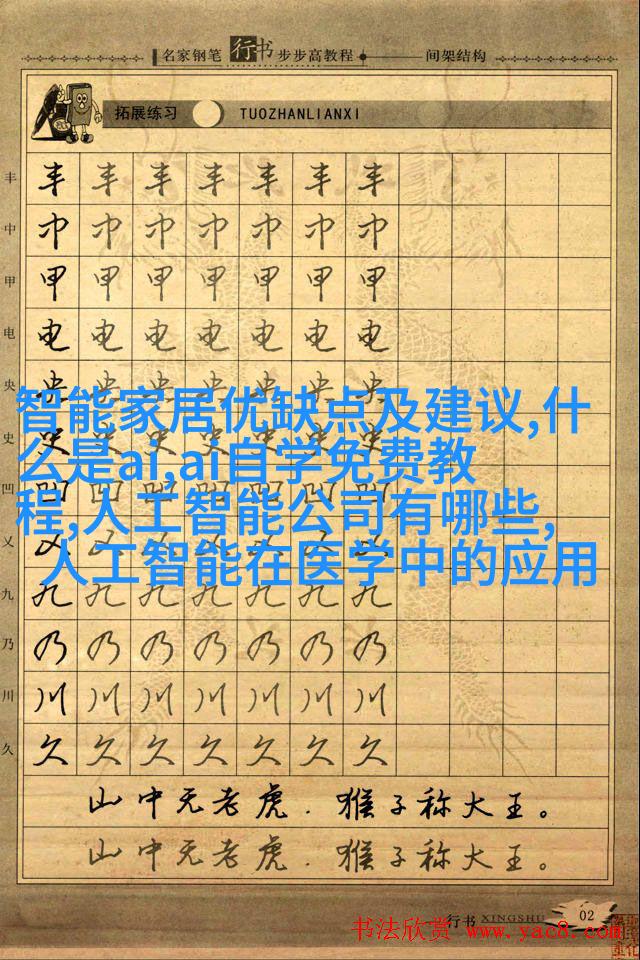 名家钢笔 行书 步步高教程 间架结构
拓展练习 TUOZHANLIANXI
丰 丰 丰 丰 丰 丰 丰 丰
中 中 中 中 中 中 中 中
甲 甲 甲 甲 甲 甲 甲 甲
电 电 电 电 电 电 电 电
央 央 央 央 央 央 央 央
智能家居优缺点及建议,什
史 史 史 史 史 史 史 史
么是ai,ai自学免费教
凹 凹 凹 凹 凹 凹 凹 凹
程,人工智能公司有哪些,
义 义 义 义 义 义 义 义
人工智能在医学中的应用
九 九 九 九 九 九 九 九
乃 乃 乃 乃 乃 乃 乃 乃
川 川 川 川 川 川 川 川
久 久 久 久 久 久 久 久
山中无老虎.猴子称大王。
山中无老虎.猴子称大王。
行书 XINGSHU 02
书法欣赏 www.yac8.com